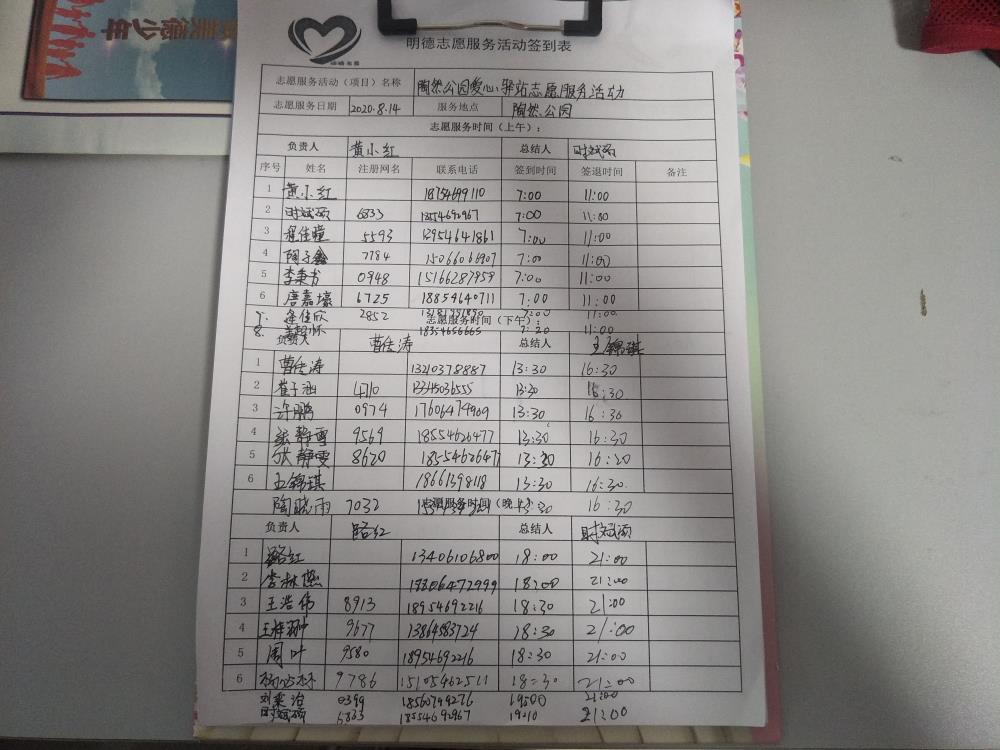 美德少年
明德志愿服务活动签到表
志愿服务活动（项目）名称 陶然公园爱心驿站志愿服务活动
志愿服务日期 2020.8.14 服务地点 陶然公园
志愿服务时间（上午）：
负责人 黄小红 总结人 时斌硕
序号 姓名 注册网名 联系电话 签到时间 签退时间 备注
1 黄小红 7:00 11:00
2 时斌硕 6833 18554692967 7:00 11:00
3 程佳瞳 5593 7:00 11:00
4 陶子鑫 7784 15066066907 7:00 11:00
5 李秉书 0948 15166287959 7:00 11:00
6 唐嘉壕 6725 18854640711 7:00 11:00
7. 佳欣 2852 7:00 11:00
志愿服务时间（下午）：
8. 18354656665 7:20 11:00
负责人 曹佳涛 总结人 王锦琪
1 曹佳涛 13210378887 13:30 16:30
2 崔子涵 4710 13345036555 13:30 16:30
3 许鹏 0974 17606474909 13:30 16:30
4 张静雪 9569 18554626477 13:30 16:30
5 张静雯 8620 18554626477 13:30 16:20
6 王锦琪 18661398118 13:30 16:30
陶晓雨 7032 志愿服务时间（晚上） 13:30 16:30
负责人 路红 总结人 时斌硕
1 路红 13406106800 18:00 21:00
2 李林燕 18806472999 18:00 21:00
3 王浩伟 8913 18954692216 18:30 21:00
4 9677 13864583724 18:30 21:00
5 周叶 9580 18954692216 18:30 21:00
6 9786 15105462511 18:30 21:00
刘 0399 18560799276 19:00 21:00
时斌硕 6833 18554692967 19:10 21:00